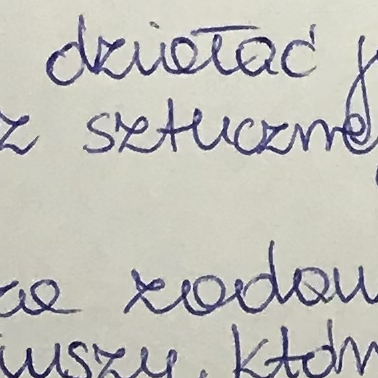 działać j
z sztuczne
za zadow
iuszy, któr